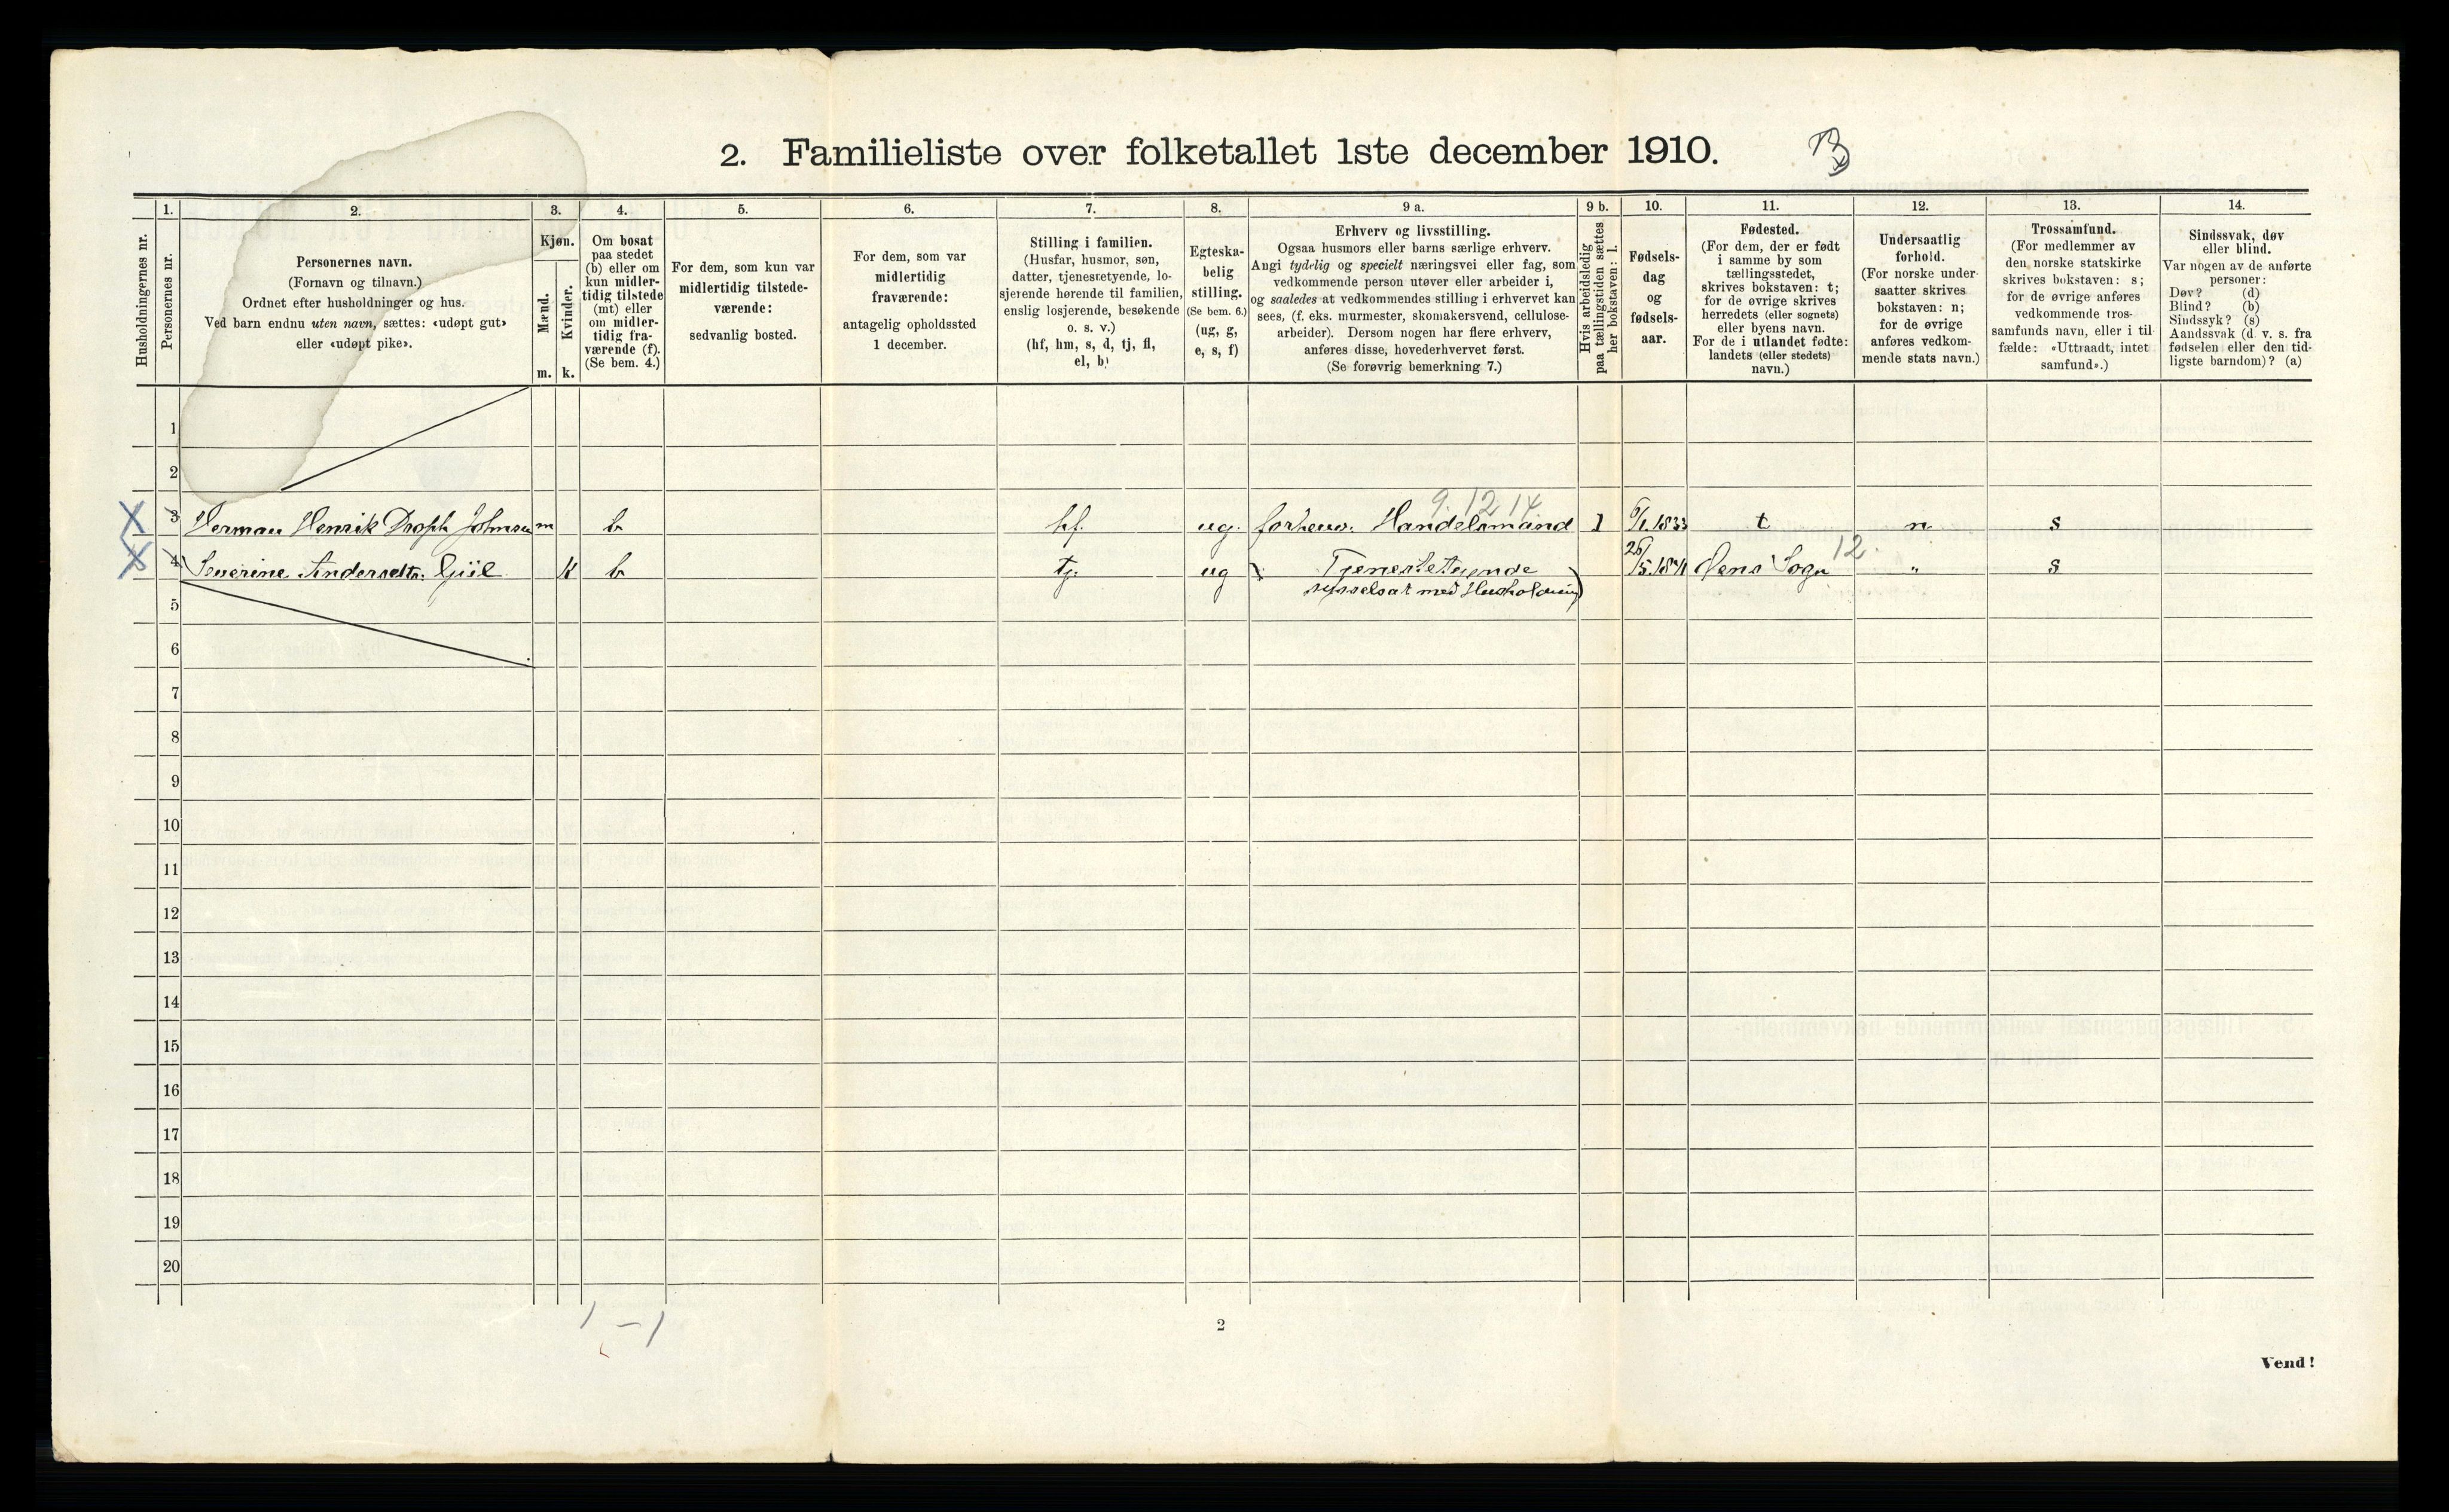 2. Familieliste over folketallet 1ste december 1910.
B
Husholdningernes nr.
1.
Personernes nr.
2.
Personernes navn.
(Fornavn og tilnavn.)
Ordnet efter husholdninger og hus.
Ved barn endnu uten navn, sættes: «udøpt gut»
eller «udøpt pike».
3.
Kjøn.
Mænd.
Kvinder.
m. k.
4.
Om bosat
paa stedet
(b) eller om
kun midler-
tidig tilstede
(mt) eller
om midler-
tidig fra-
værende (f).
(Se bem. 4.)
5.
For dem, som kun var
midlertidig tilstede-
værende:
sedvanlig bosted.
6.
For dem, som var
midlertidig
fraværende:
antagelig opholdssted
1 december.
7.
Stilling i familien.
(Husfar, husmor, søn,
datter, tjenestetyende, lo-
sjerende hørende til familien,
enslig losjerende, besøkende
o. s. v.)
(hf, hm, s, d, tj, fl,
el, b)
8.
Egteska-
belig
stilling.
(Se bem. 6.)
(ug, g,
e, s, f)
9 a.
Erhverv og livsstilling.
Ogsaa husmors eller barns særlige erhverv.
Angi tydelig og specielt næringsvei eller fag, som
vedkommende person utøver eller arbeider i,
og saaledes at vedkommendes stilling i erhvervet kan
sees, (f. eks. murmester, skomakersvend, cellulose-
arbeider). Dersom nogen har flere erhverv,
anføres disse, hovederhvervet først.
(Se forøvrig bemerkning 7.)
9 b.
Hvis arbeidsledig
paa tællingstiden sættes
her bokstaven: l.
10.
Fødsels-
dag
og
fødsels-
aar.
11.
Fødested.
(For dem, der er født
i samme by som
tællingsstedet,
skrives bokstaven: t;
for de øvrige skrives
herredets (eller sognets)
eller byens navn.
For de i utlandet fødte:
landets (eller stedets)
navn.)
12.
Undersaatlig
forhold.
(For norske under-
saatter skrives
bokstaven: n;
for de øvrige
anføres vedkom-
mende stats navn.)
13.
Trossamfund.
(For medlemmer av
den norske statskirke
skrives bokstaven: s;
for de øvrige anføres
vedkommende tros-
samfunds navn, eller i til-
fælde: «Uttraadt, intet
samfund».)
14.
Sindssvak, døv
eller blind.
Var nogen av de anførte
personer:
Døv? (d)
Blind? (b)
Sindssyk? (s)
Aandssvak (d. v. s. fra
fødselen eller den tid-
ligste barndom)? (a)
1
2
9.12 14
X 3 Herman Henrik Droph Johnsen m b hf. ug. forhenv. Handelsmand l 6/1.1833 t n s
12.
X 4 Severine Andersdtr. Giil k b tj. ug Tjenestetyende 26/5.1871 Sogn " s
sysselsat med Husholdning)
5
6
7
8
9
10
11
12
13
14
15
16
17
18
19
20
1 - 1
2
Vend!